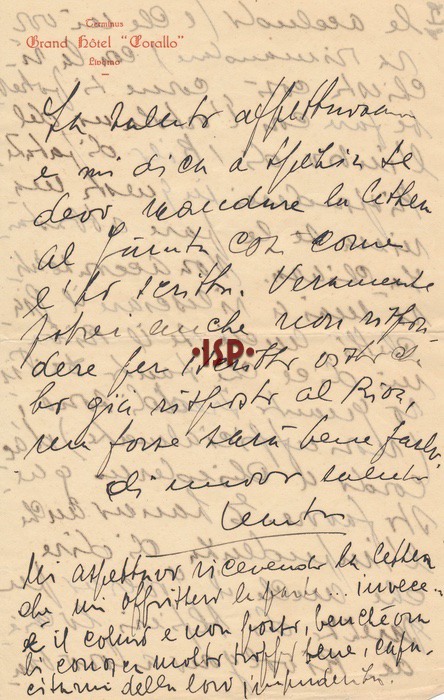 Terminus
Grand Hôtel "Corallo"
Livorno
La saluto affettuosam
e mi dica a Stjelin se
devo mandare la lettera
al Giunta così come
l'ho scritta. Veramente
potrei anche non rispon
dere per iscritto
ho già risposto al Riva,
ma forse sarà bene farlo.
di nuovo saluto
·ISP·
Mi aspettavo ricevendo la lettera
che mi offrissero la parte... invece
è il colmo e non posso, benchè ora
li conosca molto troppo bene, capa
citarmi della loro impudenza.